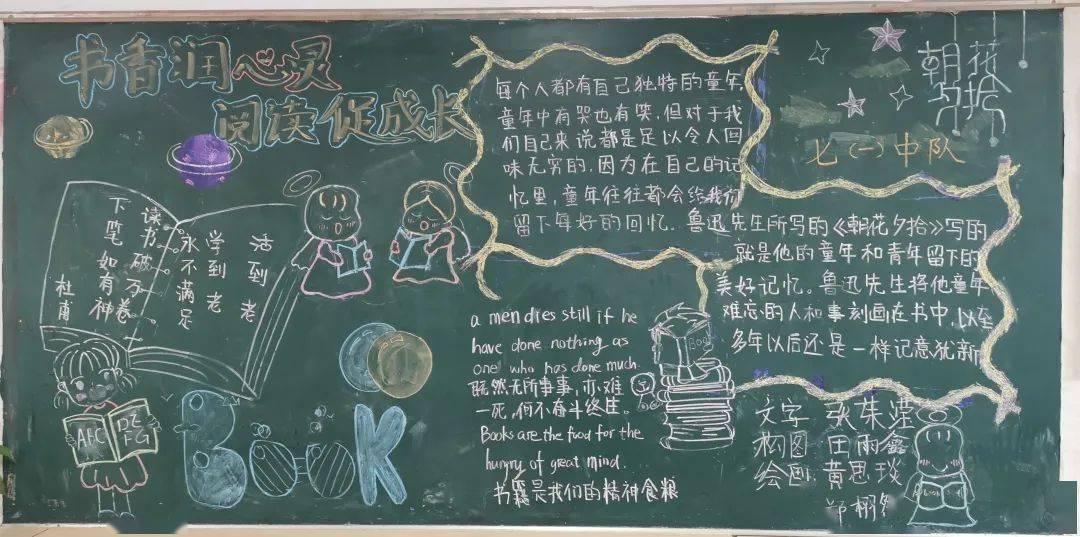 书香润心灵
阅读促成长
读书破万卷
下笔如有神
杜甫
活到老
学到老
永不满足
ABC
DE
FG
BOOK
每个人都有自己独特的童年
童年中有哭也有笑.但对于我
们自己来说都是足以令人回
味无穷的.因为在自己的记
忆里,童年往往都会给我们
留下每好的回忆.鲁迅先生所写的《朝花夕拾》写的
就是他的童年和青年留下的
美好记忆。鲁迅先生将他童年
难忘的人和事刻画在书中,以至
多年以后还是一样记意犹新
a men dies still if he
have done nothing as
one who has done much.
既然无所事事,亦难
一死,何不奋斗终生。
Books are the food for the
hungry of great mind.
书籍是我们的精神食粮
Book
朝花
夕拾
七(一)中队
文字
构图 雨鑫
绘画:黄思琰
Book